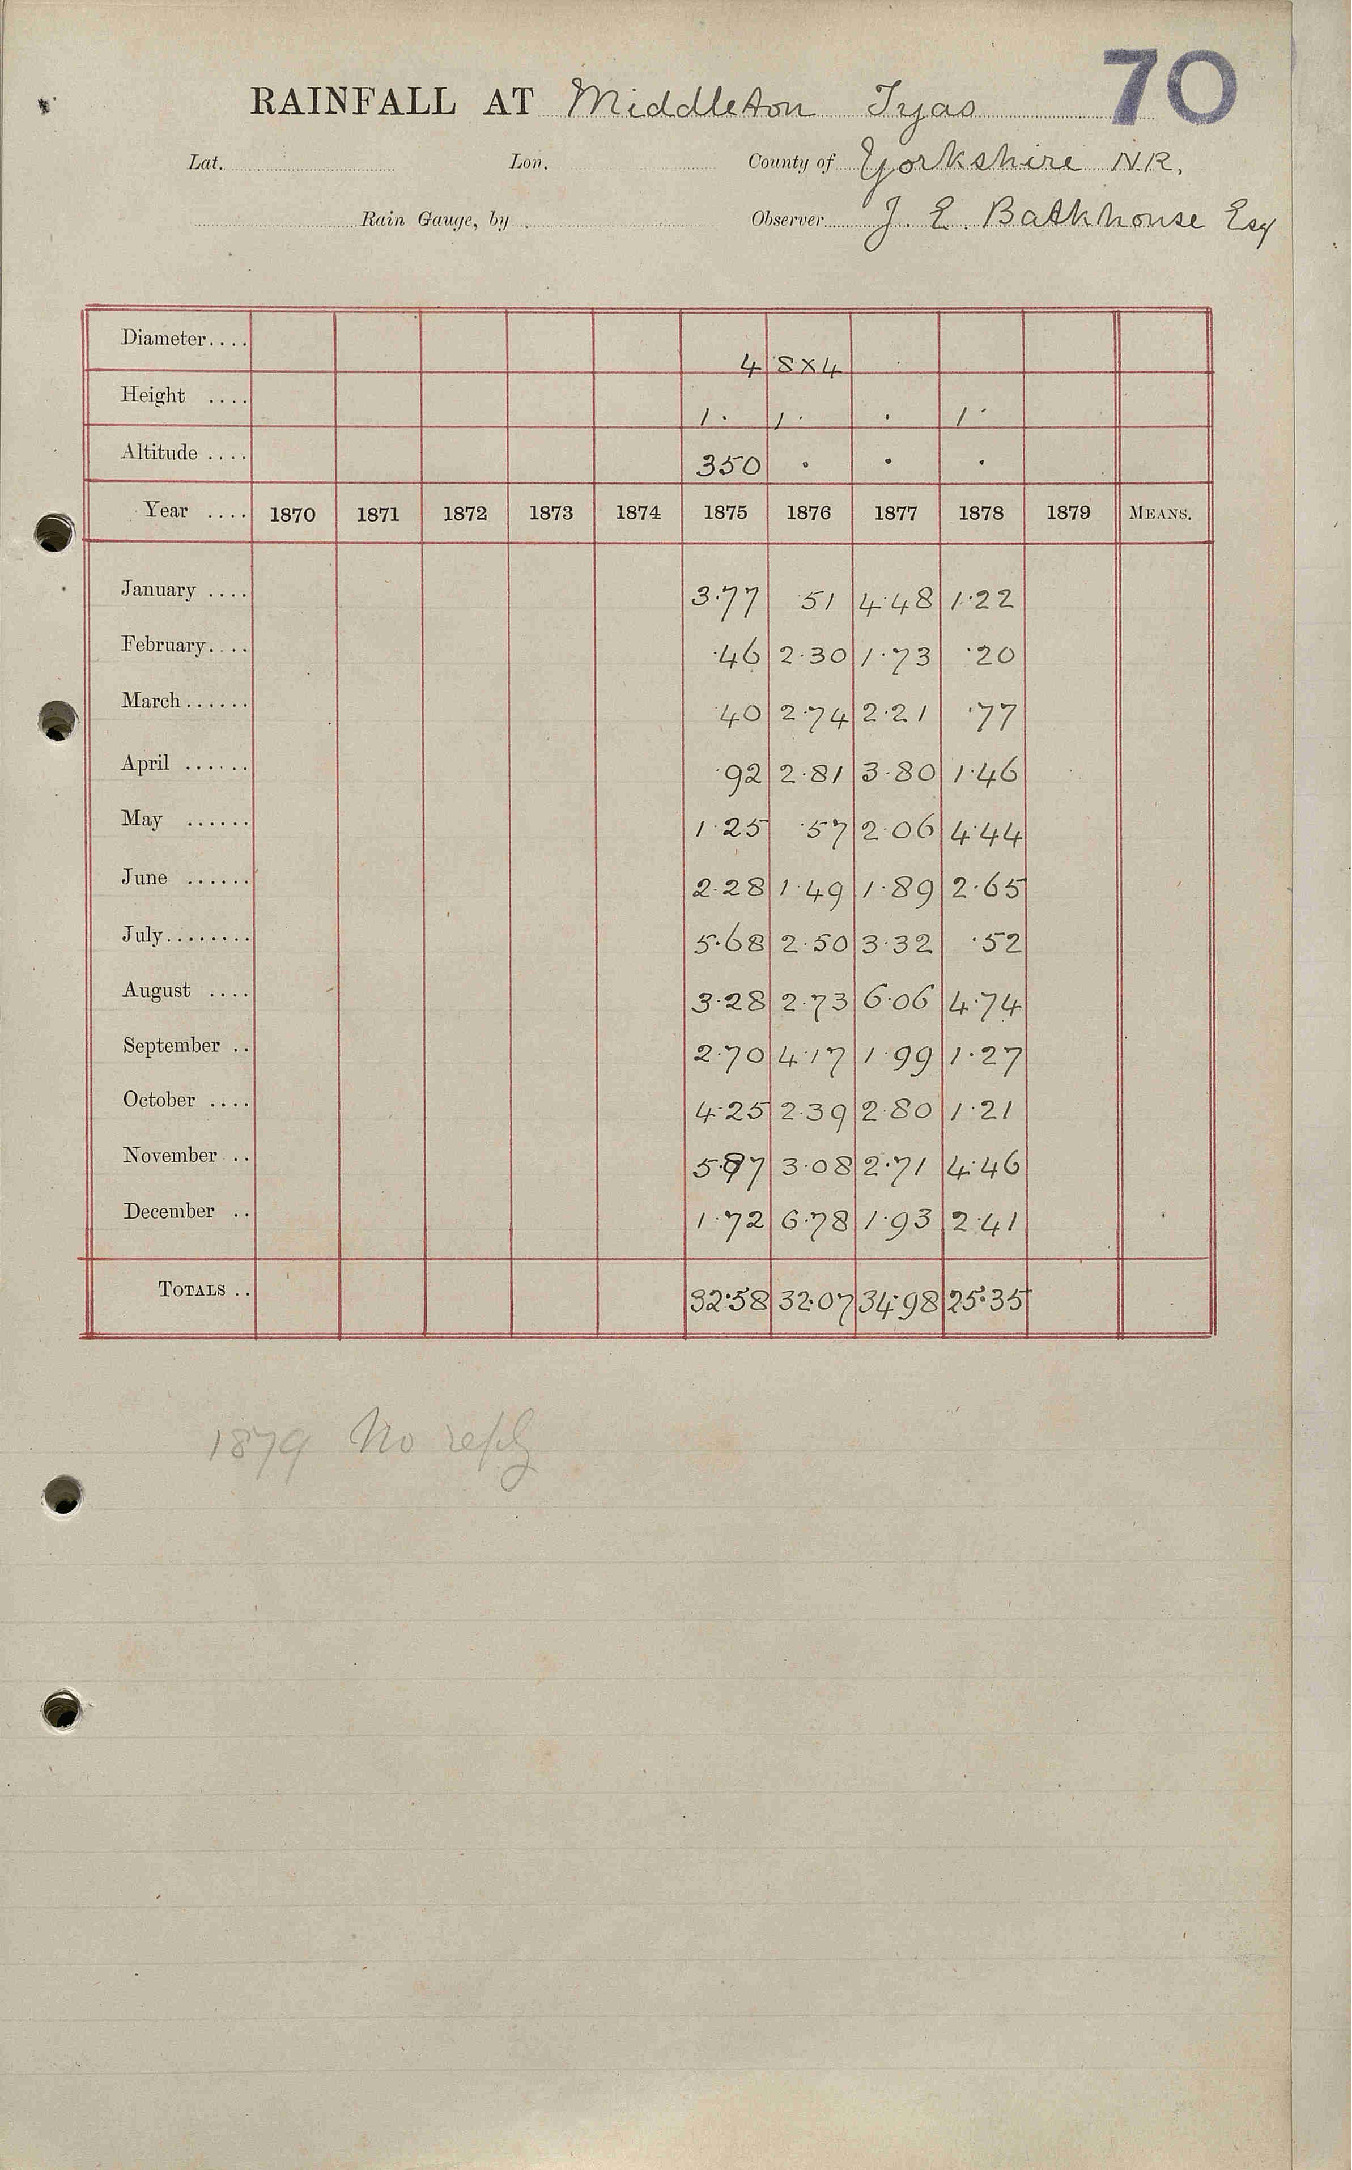 70
RAINFALL AT Middleton Tyas
Lat. Lon. County of Yorkshire N.R.
Rain Gauge, by Observer J. E. Backhouse Esq
Diameter.... 4 8×4
Height .... 1· 1· · 1·
Altitude .... 350 · · ·
Year .... 1870 1871 1872 1873 1874 1875 1876 1877 1878 1879 MEANS.
January .... 3·77 ·51 4·48 1·22
February.... ·46 2·30 1·73 ·20
March...... ·40 2·74 2·21 ·77
April ...... ·92 2·81 3·80 1·46
May ...... 1·25 ·57 2·06 4·44
June ...... 2·28 1·49 1·89 2·65
July........ 5·68 2·50 3·32 ·52
August .... 3·28 2·73 6·06 4·74
September .. 2·70 4·17 1·99 1·27
October .... 4·25 2·39 2·80 1·21
November .. 5·87 3·08 2·71 4·46
December .. 1·72 6·78 1·93 2·41
TOTALS .. 32·58 32·07 34·98 25·35
1879 No reply